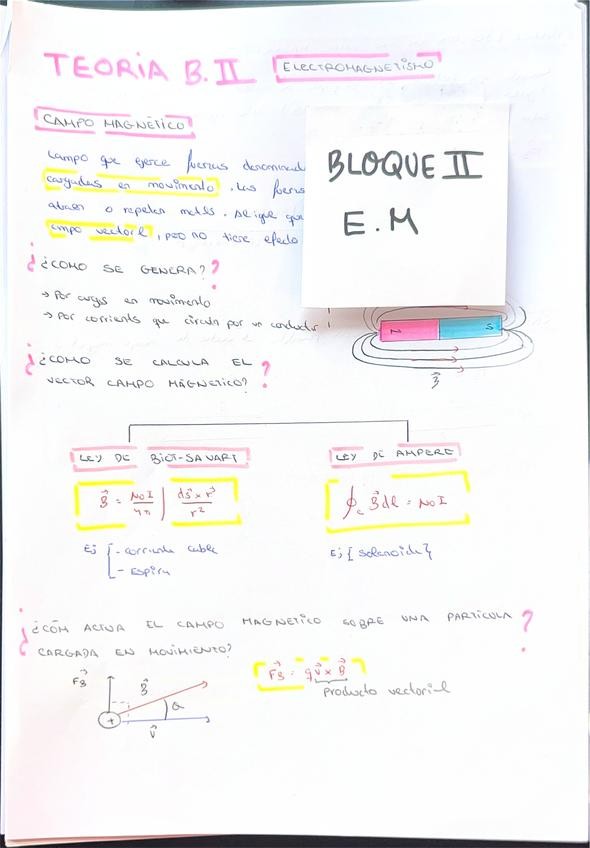 TEORÍA B.II ELECTROMAGNETISMO
CAMPO MAGNÉTICO
BLOQUE II
E.M
Campo que ejerce fuerzas denominad
cargadas en movimiento. Las fuerzas
atraer o repeler metales. que
campo vectorial, pero no tiene efecto
¿COMO SE GENERA??
→ Por cargas en movimiento
→ Por corriente que circula por un conductor
N S
B⃗
¿COMO SE CALCULA EL
VECTOR CAMPO MAGNETICO?
LEY DE BIOT-SAVART LEY DE AMPERE
B⃗ = NoI/4π ∫ ds⃗ x r⃗/r² ∮c B⃗ dl = NoI
Ej { - corriente cable
- Espira
Ej { Solenoide }
¿COM ACTUA EL CAMPO MAGNETICO SOBRE UNA PARTICULA
CARGADA EN MOVIMIENTO?
FB⃗ B⃗ α + V⃗
FB⃗ = q v⃗ x B⃗
producto vectorial